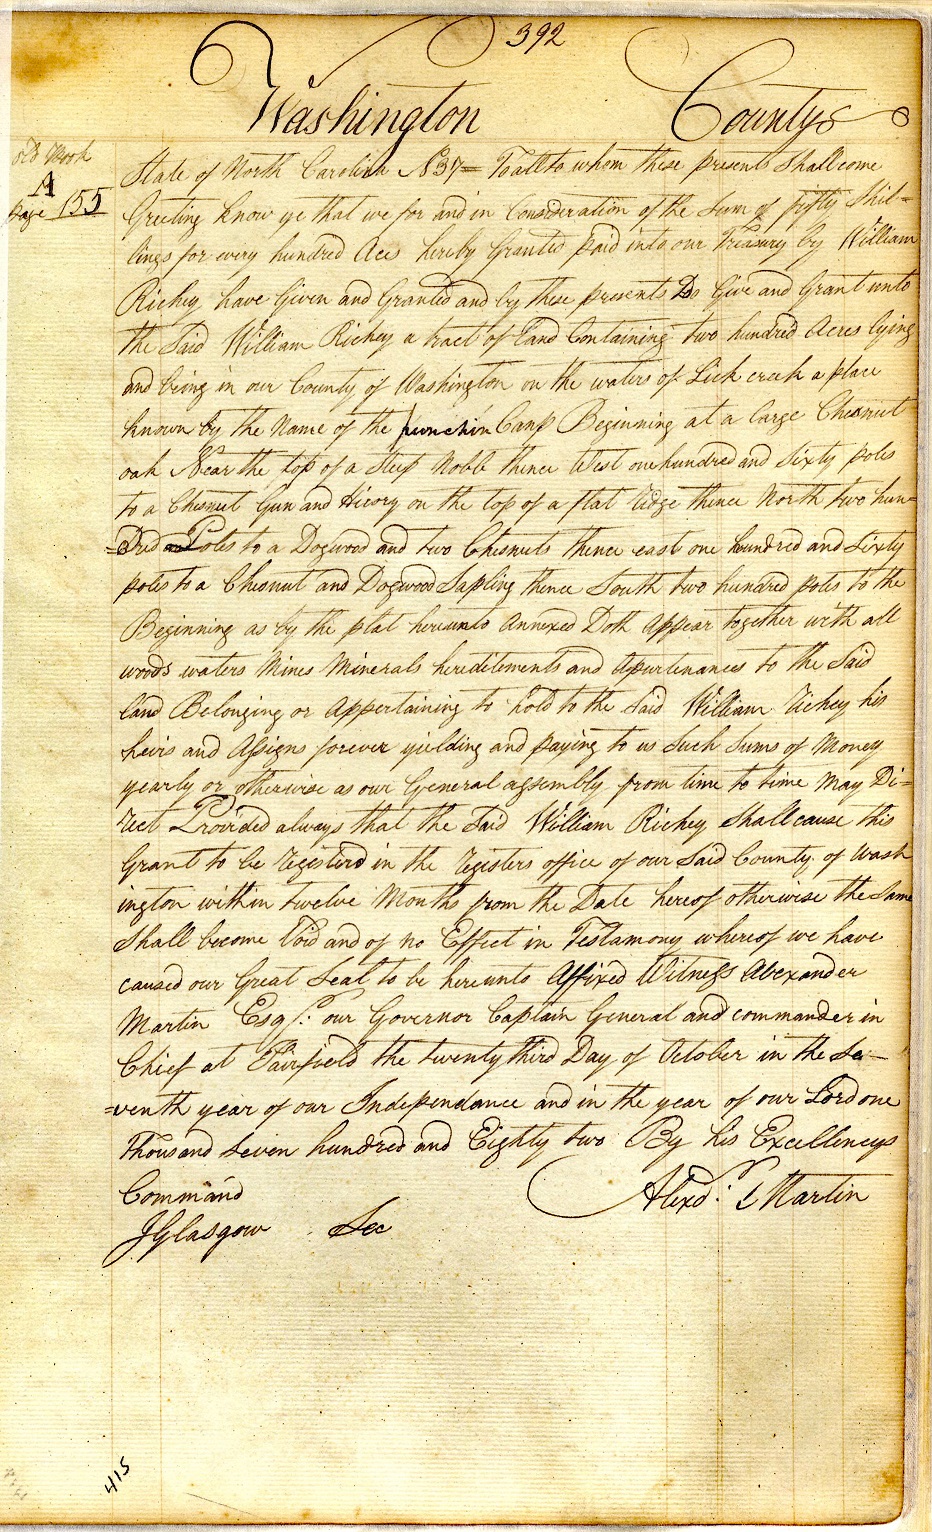 392
Washington County
old Book
A
page 155
State of North Carolina N 37 = To all to whom these presents Shall come
Greeting know ye that we for and in Consideration of the Sum of fifty Shil=
lings for every hundred Acs hereby Granted paid into our Treasury by William
Richey have Given and Granted and by these presents Do Give and Grant unto
the Said William Richey a tract of Land Containing two hundred Acres lying
and being in our County of Washington on the waters of Lick creek a place
known by the Name of the punchin Camp Beginning at a large Chesnut
oak Near the top of a Steep Nobb thence West one hundred and Sixty poles
to a Chesnut Gun and Hicory on the top of a flat Ridge thence North two hun=
=Dred Poles to a Dogwood and two Chesnuts thence east one hundred and Sixty
poles to a Chesnut and Dogwood Sapling thence South two hundred poles to the
Beginning as by the plat hereunto Annexed Doth Appear together with all
woods waters Mines Minerals hereditements and Apurtenances to the Said
land Belonging or Appertaining to hold to the Said William Richey his
heirs and Assigns forever yielding and paying to us Such Sums of Money
yearly or otherwise as our General assembly from time to time May Di=
rect Provided always that the Said William Richey Shall cause this
Grant to be Registerd in the Registers office of our Said County of Wash
ington within twelve Months from the Date hereof otherwise the Same
Shall become Void and of no Effect in Testamony whereof we have
caused our Great Seal to be hereunto Affixed Witness Alexander
Martin Esqr: our Governor Captain General and commander in
Chief at Fairfield the twenty third Day of October in the Se-
=venth year of our Independance and in the year of our Lord one
Thousand Seven hundred and Eighty two By his Excellencys
Command Alexdr: Martin
J Glasgow Sec
415